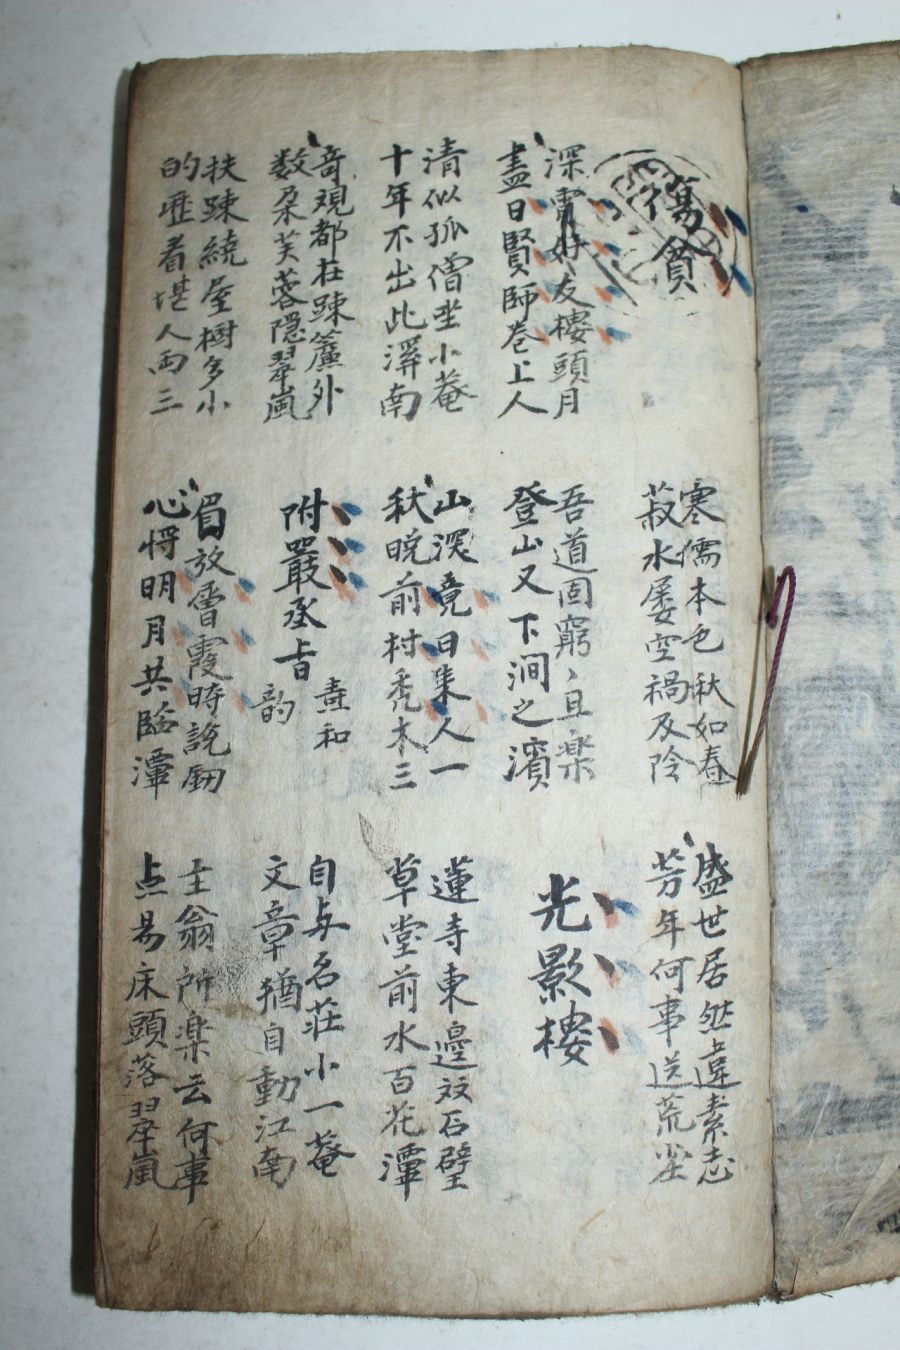 傷貧
寒儒本色秋如春
菽水屢空禍及怜
盛世居然違素志
芳年何事送荒尘
深宵好友樓頭月
盡日賢師卷上人
吾道固窮〻且樂
登山又下澗之濱
光影樓
清似孤僧坐小菴
十年不出此溪南
山深竟日集人一
秋晩前村禿木三
蓮寺東邉双石壁
草堂前水百花潭
竒观都在踈簾外
数朶芙蓉隠翠嵐
附嚴丞旨
和
韵
自与名莊小一菴
文章猶自動江南
扶踈繞屋樹多小
的歴看堪人両三
眉放雪霞時說劒
心将明月共臨潭
主翁所楽云何事
点易床頭落翠嵐